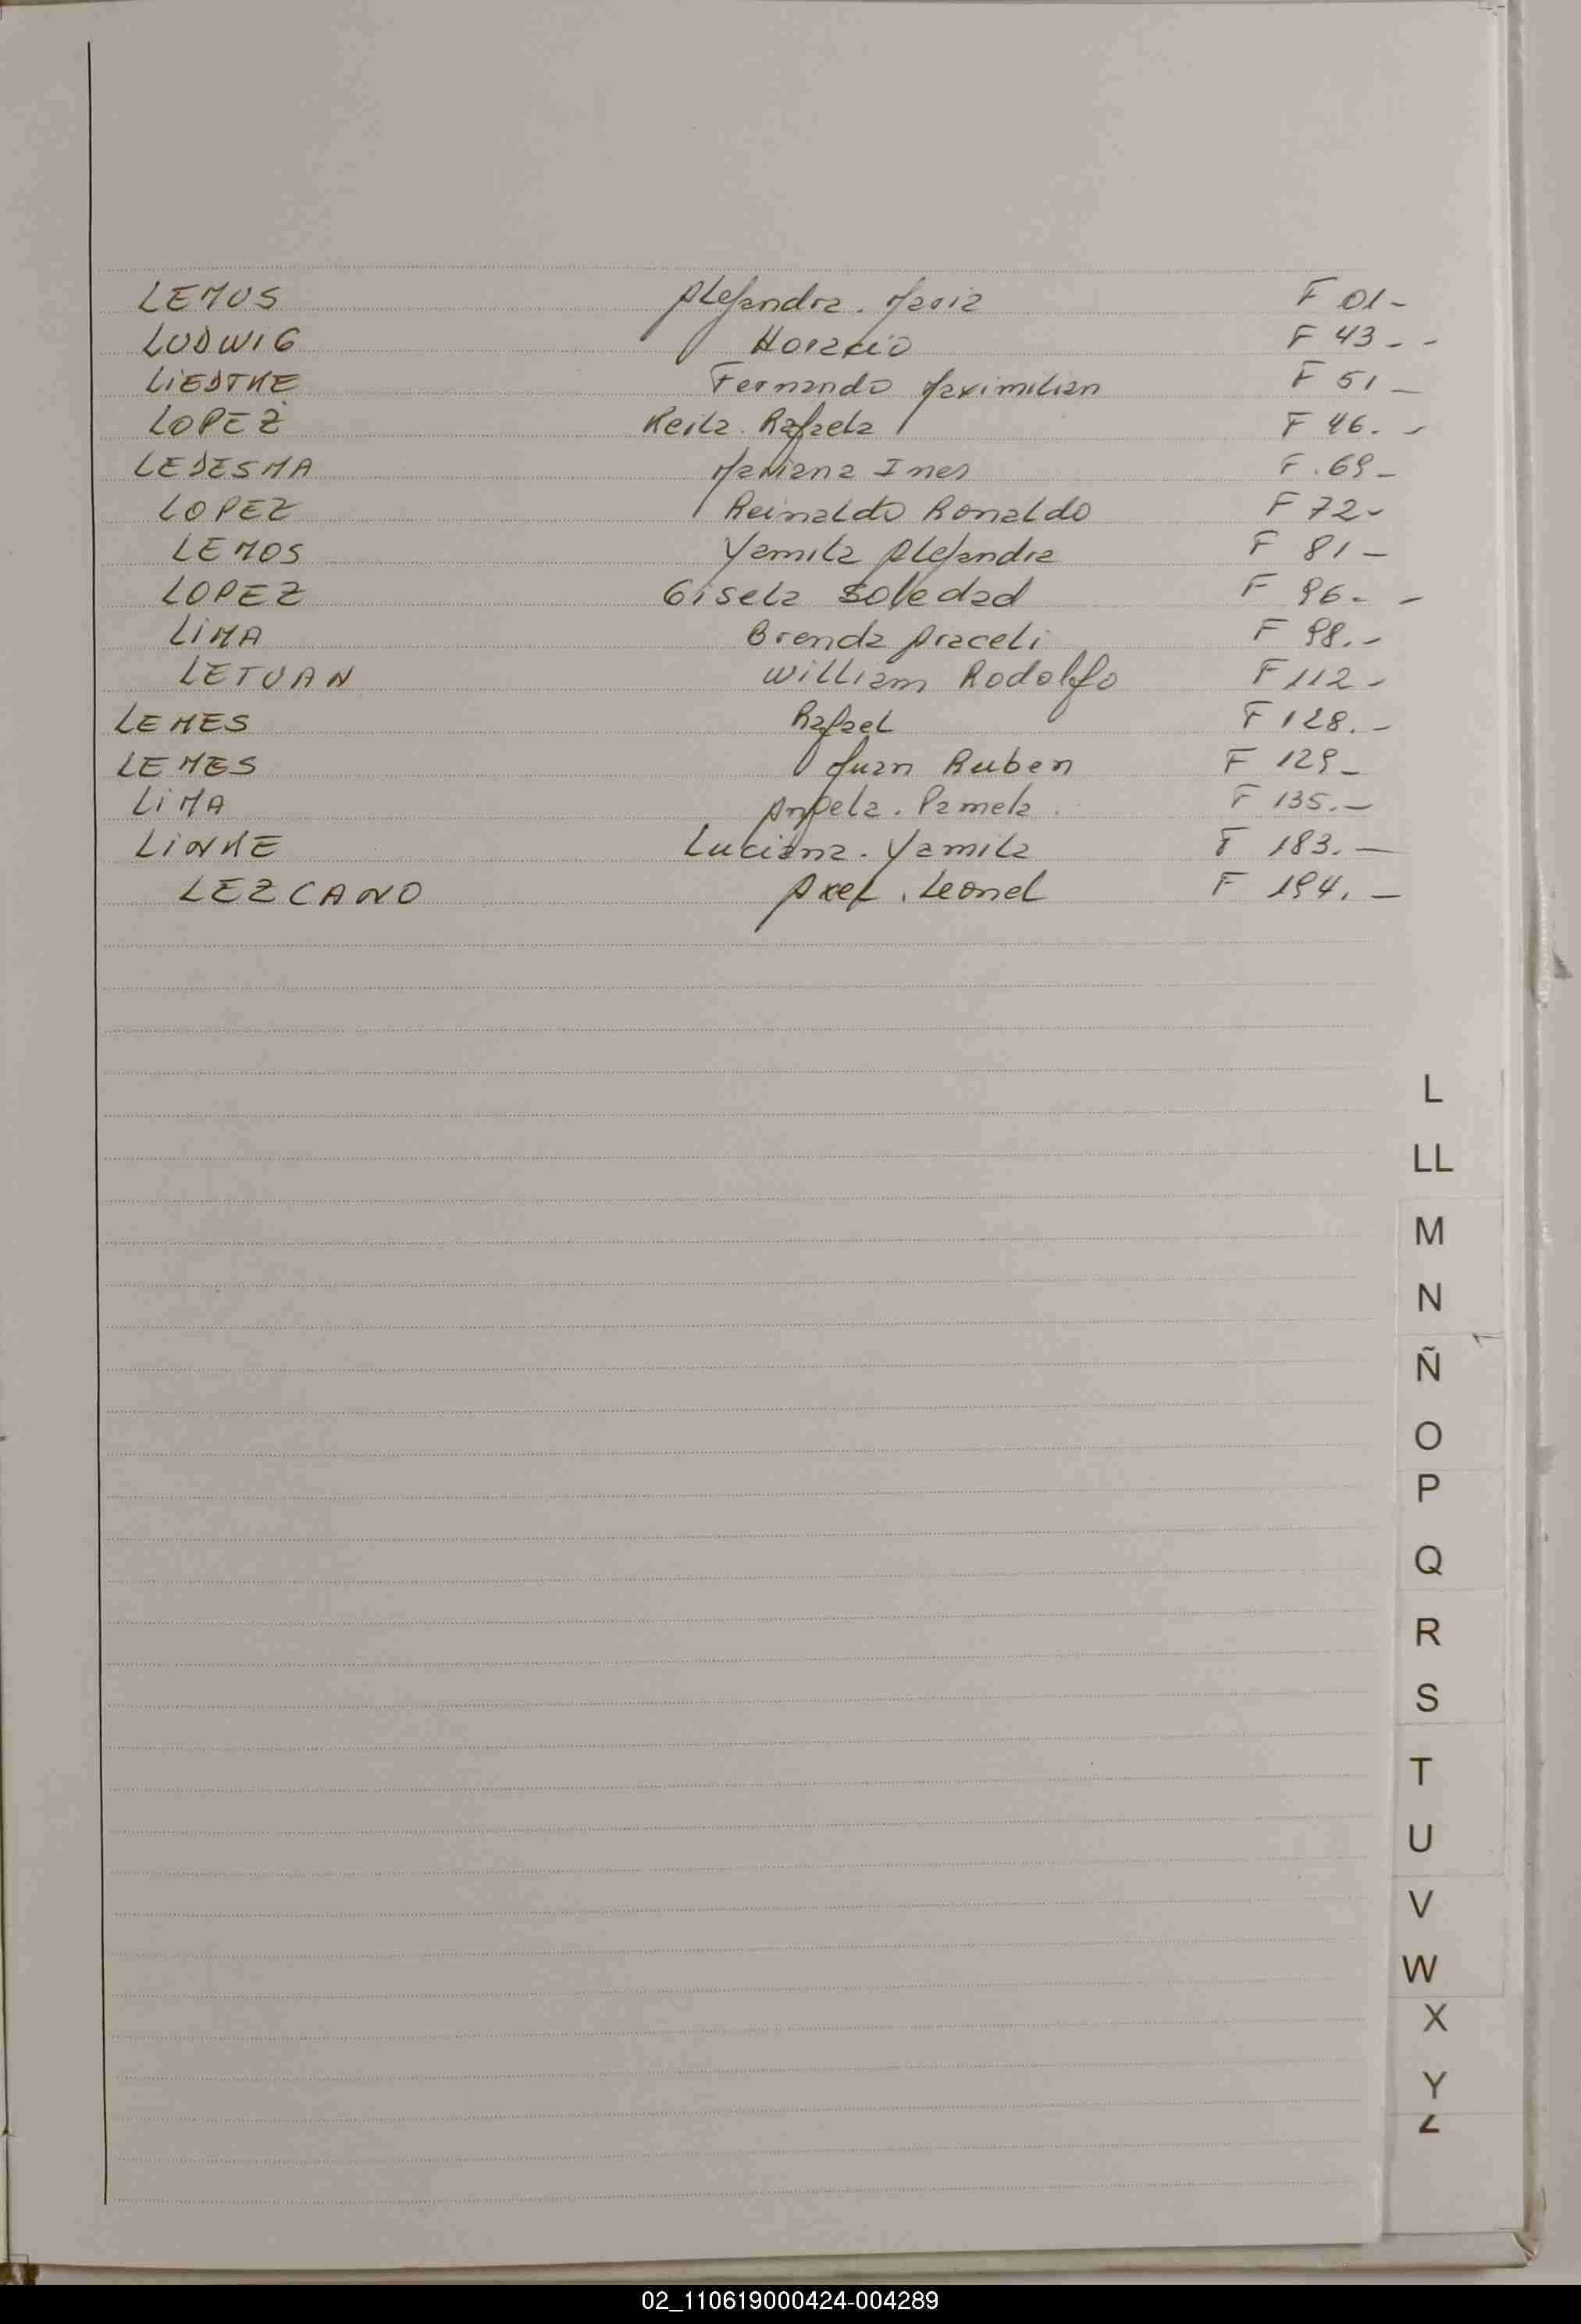 LEMOS Alejandra. Maria F 01-
LUDWIG Horacio F 43--
LiEDTKE Fernando Maximilian F 51-
LOPEZ Keila. Rafaela F 46.-
LEDESMA Mariana Ines F.69-
LOPEZ Reinaldo Ronaldo F 72-
LEMOS Yamila Alejandra F 81-
LOPEZ Gisela Soledad F 96--
LiMA Brenda Araceli F 98.-
LETUAN William Rodolfo F 112-
LEMES Rafael F 128.-
LEMES Juan Ruben F 129-
LiMA Angela. Pamela. F 135.-
LiNKE Luciana. Yamila F 183.-
LEZCANO Axel. Leonel F 194.-
L
LL
M
N
Ñ
O
P
Q
R
S
T
U
V
W
X
Y
Z
02_110619000424-004289